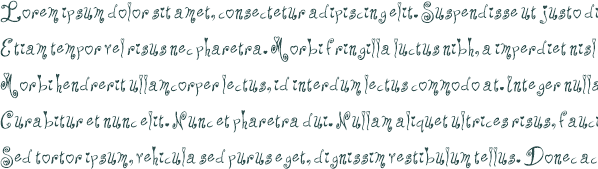 Lorem ipsum dolor sit amet, consectetur adipiscing elit. Suspendisse ut justo di
Etiam tempor vel risus nec pharetra. Morbi fringilla luctus nibh, a imperdiet nisl
Morbi hendrerit ullamcorper lectus, id interdum lectus commodo at. Integer nulla
Curabitur et nunc elit. Nunc et pharetra dui. Nullam aliquet ultrices risus, fauci
Sed tortor ipsum, vehicula sed purus eget, dignissim vestibulum tellus. Donec ac